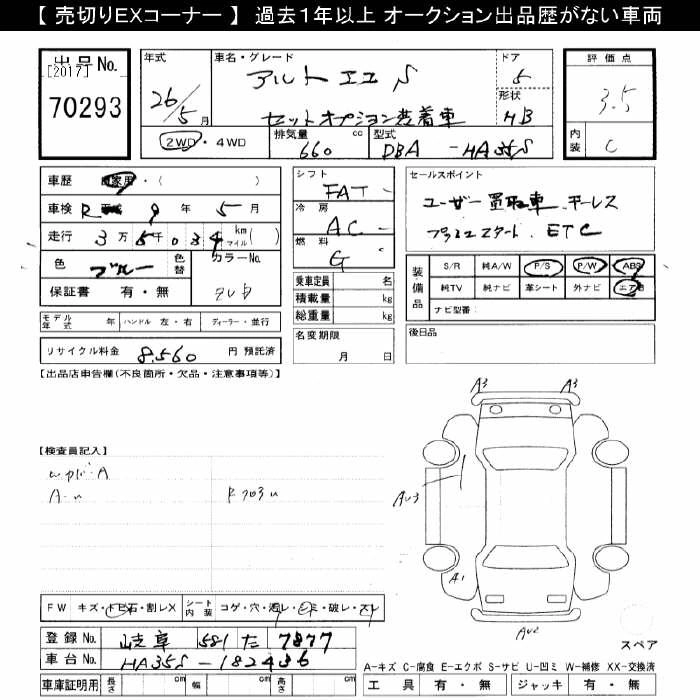 【 売切りEXコーナー 】 過去1年以上 オークション出品歴がない車両
出品No.
[2017]
70293
年式
26/5月
車名・グレード
アルトエコS
セットオプション装着車
ドア
5
形状
HB
評価点
3.5
内装
C
2WD・4WD
排気量
660 cc
型式
DBA-HA35S
車歴 自家用・( )
車検 R 9年 5月
走行 3万5千034 km マイル( )
色 ブルー 色替 カラーNo.
保証書 有・無 ZUB
シフト
FAT
冷房
AC
燃料
G
乗車定員 名
積載量 kg
総重量 kg
名変期限
月 日
セールスポイント
ユーザー買取車 キーレス
プッシュスタート ETC
装備品
S/R 純A/W P/S P/W ABS
純TV 純ナビ 革シート 外ナビ エアB
ナビ型番：
後日品
モデル年式 年 ハンドル 左・右 ディーラー・並行
リサイクル料金 8,560 円 預託済
【出品店申告欄(不良箇所・欠品・注意事項等)】
【検査員記入】
A-u
FW キズ・トビ石・割レX シート内装 コゲ・穴・汚レ・シミ・破レ・スレ
登録No. 岐阜 581 た 7877
車台No. HA35S-182436
車庫証明用 長さ cm 幅 cm 高さ cm
A3
A3
AU3
A1
AU2
スペア
A-キズ C-腐食 E-エクボ S-サビ U-凹ミ W-補修 XX-交換済
工具 有・無 ジャッキ 有・無